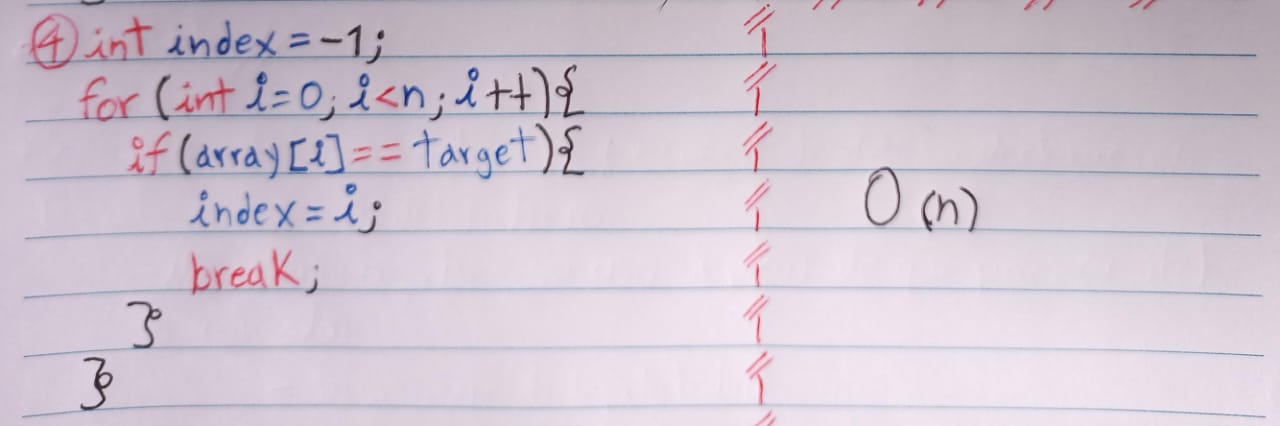 ④ int index = -1;
for (int i=0; i<n; i++){
if(array[i]== target){
index = i;
O(n)
break;
}
}